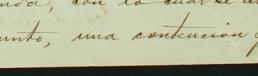 con lo cual se
unto, una contencion